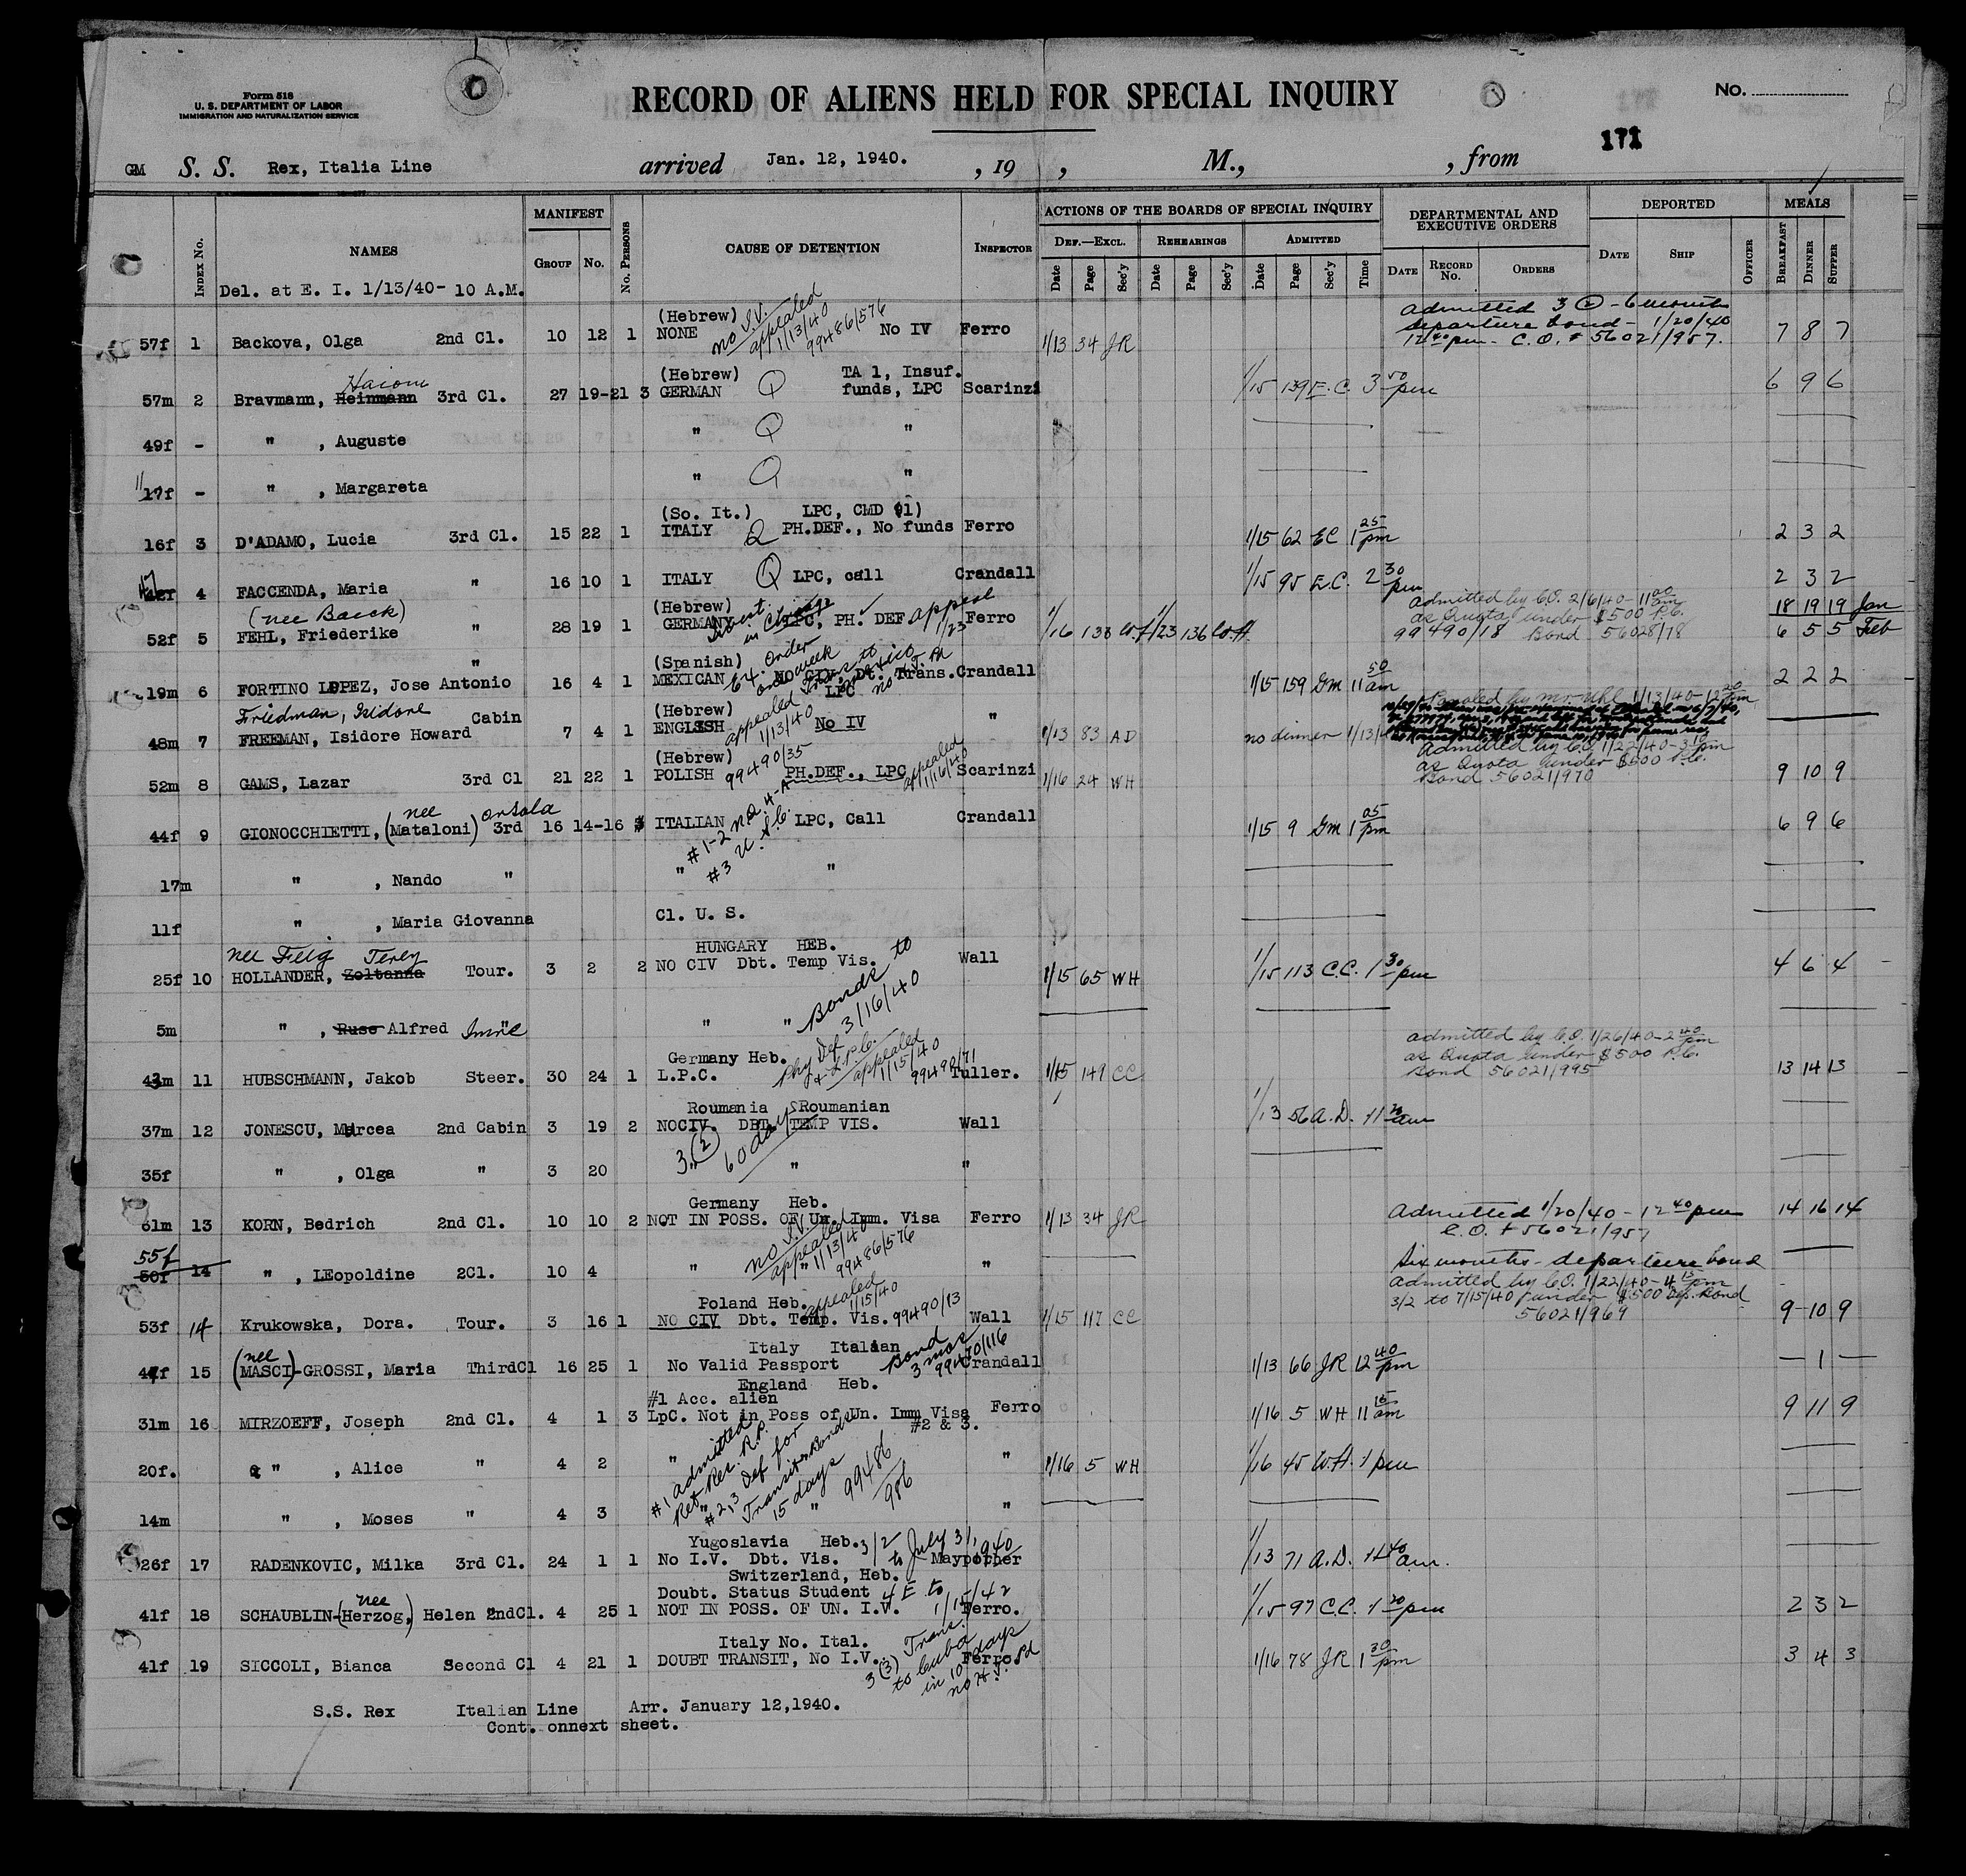 Form 518
U. S. DEPARTMENT OF LABOR
IMMIGRATION AND NATURALIZATION SERVICE
RECORD OF ALIENS HELD FOR SPECIAL INQUIRY
No.
171
GM S. S. Rex, Italia Line arrived Jan. 12, 1940. , 19 , M., , from
Index No. NAMES MANIFEST Group No. No. Persons CAUSE OF DETENTION Inspector
ACTIONS OF THE BOARDS OF SPECIAL INQUIRY
Def.—Excl. Rehearings Admitted
Date Page Sec'y Date Page Sec'y Date Page Sec'y Time
DEPARTMENTAL AND EXECUTIVE ORDERS
Date Record No. Orders
DEPORTED
Date Ship Officer
MEALS
Breakfast Dinner Supper
Del. at E. I. 1/13/40- 10 A.M.
(Hebrew) no I.V. appealed 1/13/40 99486/576
57f 1 Backova, Olga 2nd Cl. 10 12 1 NONE No IV Ferro 1/13 34 JR 7 8 7
admitted 3 (2) - 6 months
departure bond - 1/20/40
12 40 pm - C.O. # 56021/957.
Haiom
(Hebrew) TA 1, Insuf.
57m 2 Bravmann, Heinmann 3rd Cl. 27 19-21 3 GERMAN Q funds, LPC Scarinzi 1/15 139 E.C. 3 50 pm 6 9 6
49f - " , Auguste " Q "
11
17f - " , Margareta " Q "
(So. It.) LPC, CMD (1)
16f 3 D'ADAMO, Lucia 3rd Cl. 15 22 1 ITALY Q PH.DEF., No funds Ferro 1/15 62 EC 1 25 pm 2 3 2
4 FACCENDA, Maria " 16 10 1 ITALY Q LPC, call Crandall 1/15 95 E.C. 2 30 pm 2 3 2
(nee Baeck)
(Hebrew)
52f 5 FEHL, Friederike " 28 19 1 GERMANY LPC, PH. DEF appeal 1/23 Ferro 1/16 138 W.H 1/23 136 W.H 18 19 19 Jan
6 5 5 Feb
admitted by C.O. 2/6/40 - 11 00 am
as Quota under $500 P.C.
99490/18 Bond 56028/78
(Spanish)
19m 6 FORTINO LOPEZ, Jose Antonio " 16 4 1 MEXICAN NO CIV, Dt. Trans. LPC Crandall 1/15 159 GM 11 50 am 2 2 2
Friedman, Isidore
(Hebrew) appealed 1/13/40
48m 7 FREEMAN, Isidore Howard Cabin 7 4 1 ENGLISH No IV " 1/13 83 AD no dinner 1/13/40
Paroled by Mr Uhl 1/13/40 - 12 20 pm
(Hebrew) 99490/35
52m 8 GAMS, Lazar 3rd Cl 21 22 1 POLISH PH.DEF., LPC appealed 1/16/40 Scarinzi 1/16 24 WH 9 10 9
admitted by C.O. 1/22/40 - 3 10 pm
as Quota under $500 P.C.
Bond 56021/970
nee Orsola
44f 9 GIONOCCHIETTI, (Mataloni) 3rd 16 14-16 3 ITALIAN LPC, Call Crandall 1/15 9 GM 1 05 pm 6 9 6
#1-2 N.Q. 4-A
#3 U.S.C.
17m " , Nando " " "
11f " , Maria Giovanna Cl. U. S.
nee Felig Terez
HUNGARY HEB.
25f 10 HOLLANDER, Zoltanna Tour. 3 2 2 NO CIV Dbt. Temp Vis. Wall 1/15 65 WH 1/15 113 C.C. 1 30 pm 4 6 4
Bonds to 3/16/40
5m " , Ruse Alfred Imre " "
Germany Heb. Phy Def & L.P.C. appealed 1/15/40 99490/71
43m 11 HUBSCHMANN, Jakob Steer. 30 24 1 L.P.C. Tuller. 1/15 149 CC 13 14 13
admitted by C.O. 1/26/40 - 2 40 pm
as Quota under $500 P.C.
Bond 56021/995
Roumania Roumanian
37m 12 JONESCU, Mircea 2nd Cabin 3 19 2 NOCIV. DBT. TEMP VIS. Wall 1/13 56 A.D. 11 20 am
3 (2) 60 days
35f " , Olga " 3 20 " "
Germany Heb.
61m 13 KORN, Bedrich 2nd Cl. 10 10 2 NOT IN POSS. OF Un. Imm. Visa Ferro 1/13 34 JR 14 16 14
Admitted 1/20/40 - 12 40 pm
C.O. # 56021/957
Six months - departure bond
no I.V. appealed 1/13/40 99486/576
55f
50f 14 " , LEopoldine 2Cl. 10 4 " " "
Poland Heb. appealed 1/15/40
53f 14 Krukowska, Dora. Tour. 3 16 1 NO CIV Dbt. Temp. Vis. 99490/13 Wall 1/15 117 CC 9 10 9
admitted by C.O. 1/22/40 - 4 15 pm
3/2 to 7/15/40 under $500 Dep. Bond
56021/969
(nee Italy Italian Bond 3 mos 99490/116
47f 15 MASCI)-GROSSI, Maria ThirdCl 16 25 1 No Valid Passport Crandall 1/13 66 JR 12 40 pm — 1 —
England Heb.
#1 Acc. alien
31m 16 MIRZOEFF, Joseph 2nd Cl. 4 1 3 LpC. Not in Poss of Un. Imm Visa #2 & 3. Ferro 1/16 5 WH 11 15 am 9 11 9
#1 admitted Ret Res. R.P.
#2,3 Def for Transit Bonds 15 days 99486/986
20f. " , Alice " 4 2 " " 1/16 5 WH 1/16 45 W.H. 1 pm
14m " , Moses " 4 3 " " "
Yugoslavia Heb. 3/2 to July 31, 1940
26f 17 RADENKOVIC, Milka 3rd Cl. 24 1 1 No I.V. Dbt. Vis. Maypother 1/13 71 A.D. 11 40 am.
Switzerland, Heb.
Doubt. Status Student 4 E to 1/15/42
41f 18 SCHAUBLIN-(nee Herzog,) Helen 2ndCl. 4 25 1 NOT IN POSS. OF UN. I.V. Ferro. 1/15 97 C.C. 1 20 pm 2 3 2
Italy No. Ital.
41f 19 SICCOLI, Bianca Second Cl 4 21 1 DOUBT TRANSIT, No I.V. Ferro. 1/16 78 JR 1 30 pm 3 4 3
3 (3) Trans. to Cuba in 10 days no H.T. Pd
S.S. Rex Italian Line Arr. January 12,1940.
Cont. onnext sheet.